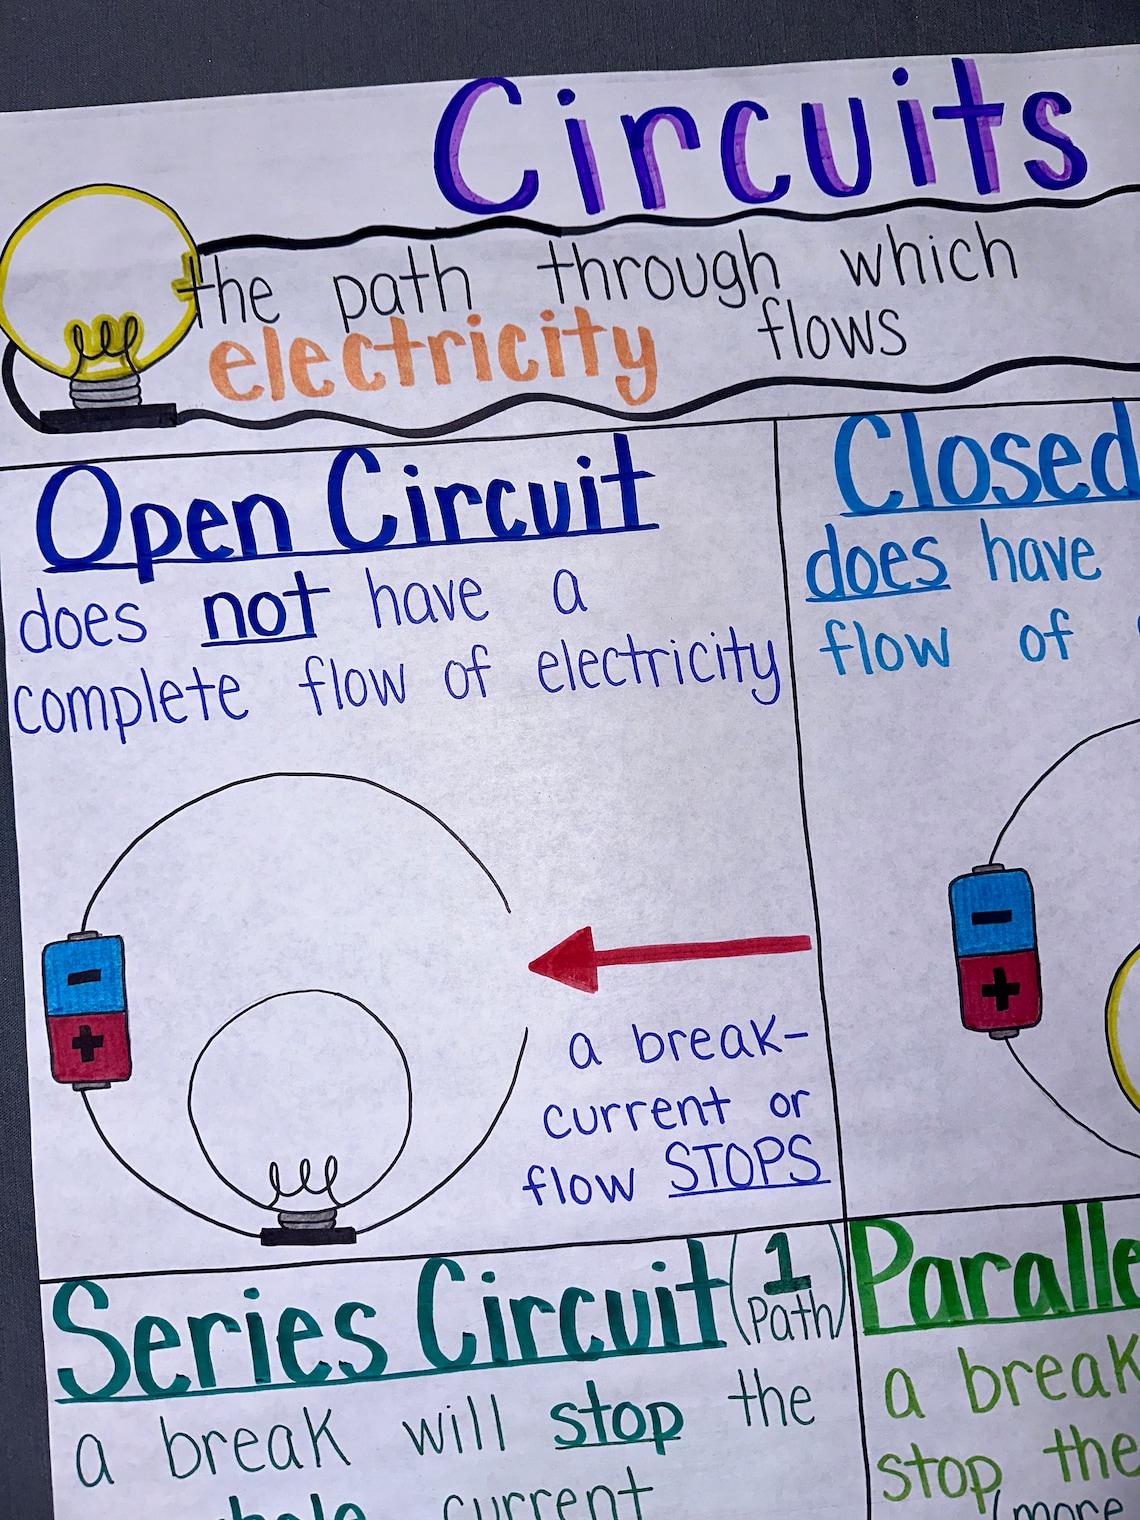 Circuits
the path through which
electricity flows
Open Circuit
does not have a
complete flow of electricity
-
+
a break-
current or
flow STOPS
Closed
does have
flow of
-
+
Series Circuit (1 Path)
a break will stop the
current
Paralle
a break
stop the
(more